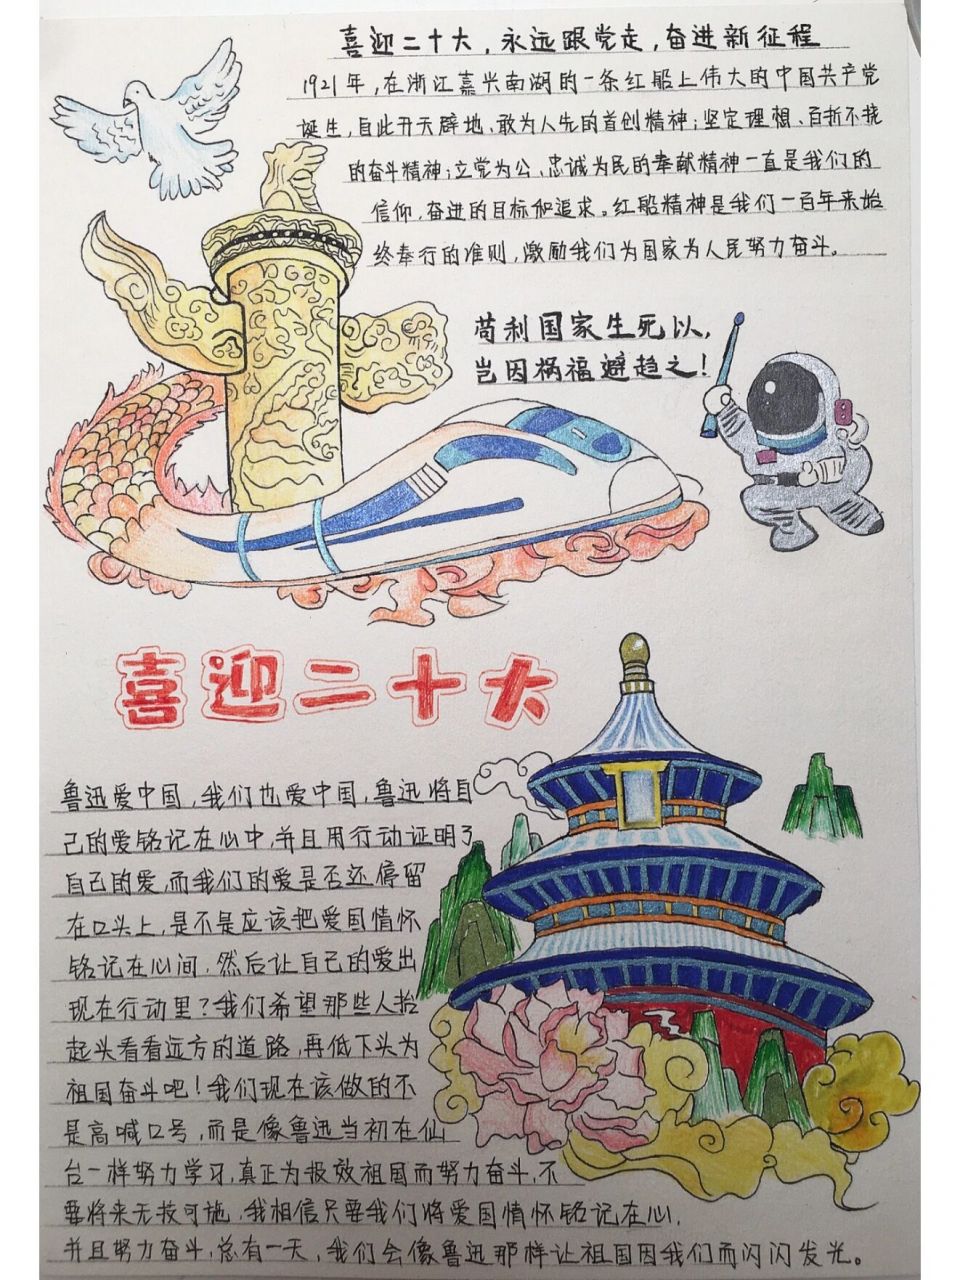 喜迎二十大，永远跟党走，奋进新征程
1921年，在浙江嘉兴南湖的一条红船上伟大的中国共产党
诞生，自此开天辟地、敢为人先的首创精神；坚定理想、百折不挠
的奋斗精神；立党为公、忠诚为民的奉献精神一直是我们的
信仰，奋进的目标和追求。红船精神是我们一百年来始
终奉行的准则，激励我们为国家为人民努力奋斗。
苟利国家生死以，
岂因祸福避趋之！
喜迎二十大
鲁迅爱中国，我们也爱中国，鲁迅将自
己的爱铭记在心中，并且用行动证明了
自己的爱，而我们的爱是否还停留
在口头上，是不是应该把爱国情怀
铭记在心间，然后让自己的爱出
现在行动里？我们希望那些人抬
起头看看远方的道路，再低下头为
祖国奋斗吧！我们现在该做的不
是高喊口号，而是像鲁迅当初在仙
台一样努力学习，真正为报效祖国而努力奋斗，不
要将来无技可施，我相信只要我们将爱国情怀铭记在心，
并且努力奋斗，总有一天，我们会像鲁迅那样让祖国因我们而闪闪发光。